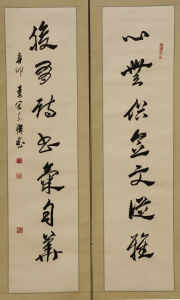 心無俗念文從雅
腹有詩書氣自華
辛卯